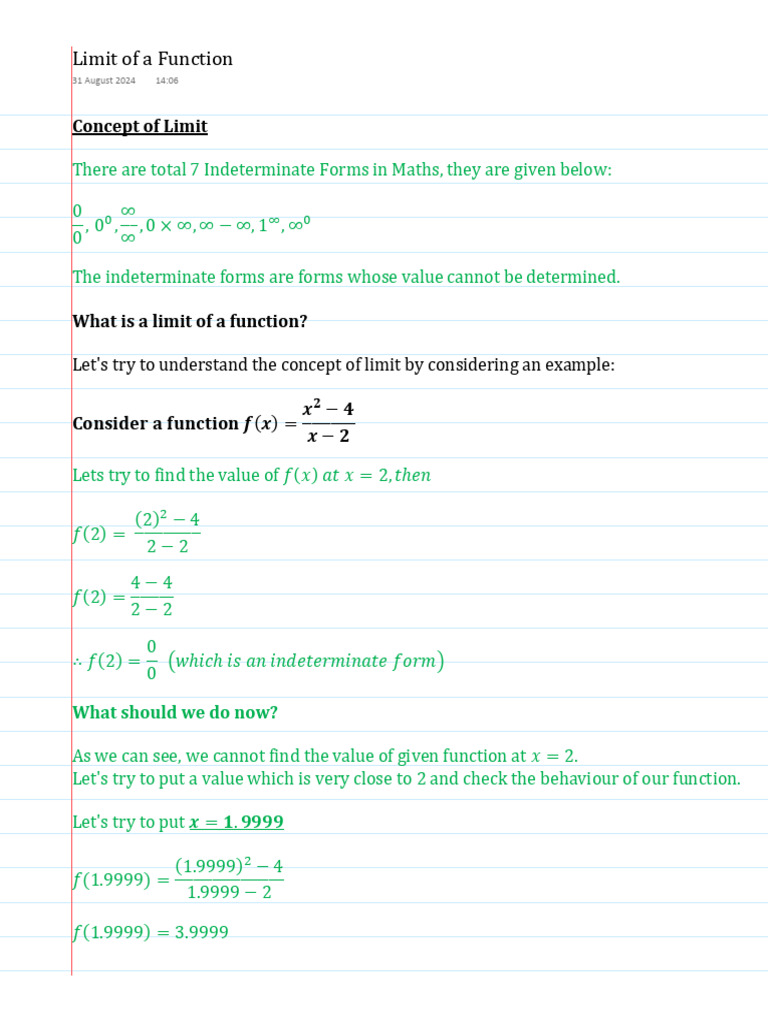 Limit of a Function
31 August 2024 14:06
Concept of Limit
There are total 7 Indeterminate Forms in Maths, they are given below:
0/0, 0⁰, ∞/∞, 0 × ∞, ∞ − ∞, 1^∞, ∞⁰
The indeterminate forms are forms whose value cannot be determined.
What is a limit of a function?
Let's try to understand the concept of limit by considering an example:
Consider a function f(x) = (x² − 4)/(x − 2)
Lets try to find the value of f(x) at x = 2, then
f(2) = ((2)² − 4)/(2 − 2)
f(2) = (4 − 4)/(2 − 2)
∴ f(2) = 0/0 (which is an indeterminate form)
What should we do now?
As we can see, we cannot find the value of given function at x = 2.
Let's try to put a value which is very close to 2 and check the behaviour of our function.
Let's try to put x = 1.9999
f(1.9999) = ((1.9999)² − 4)/(1.9999 − 2)
f(1.9999) = 3.9999